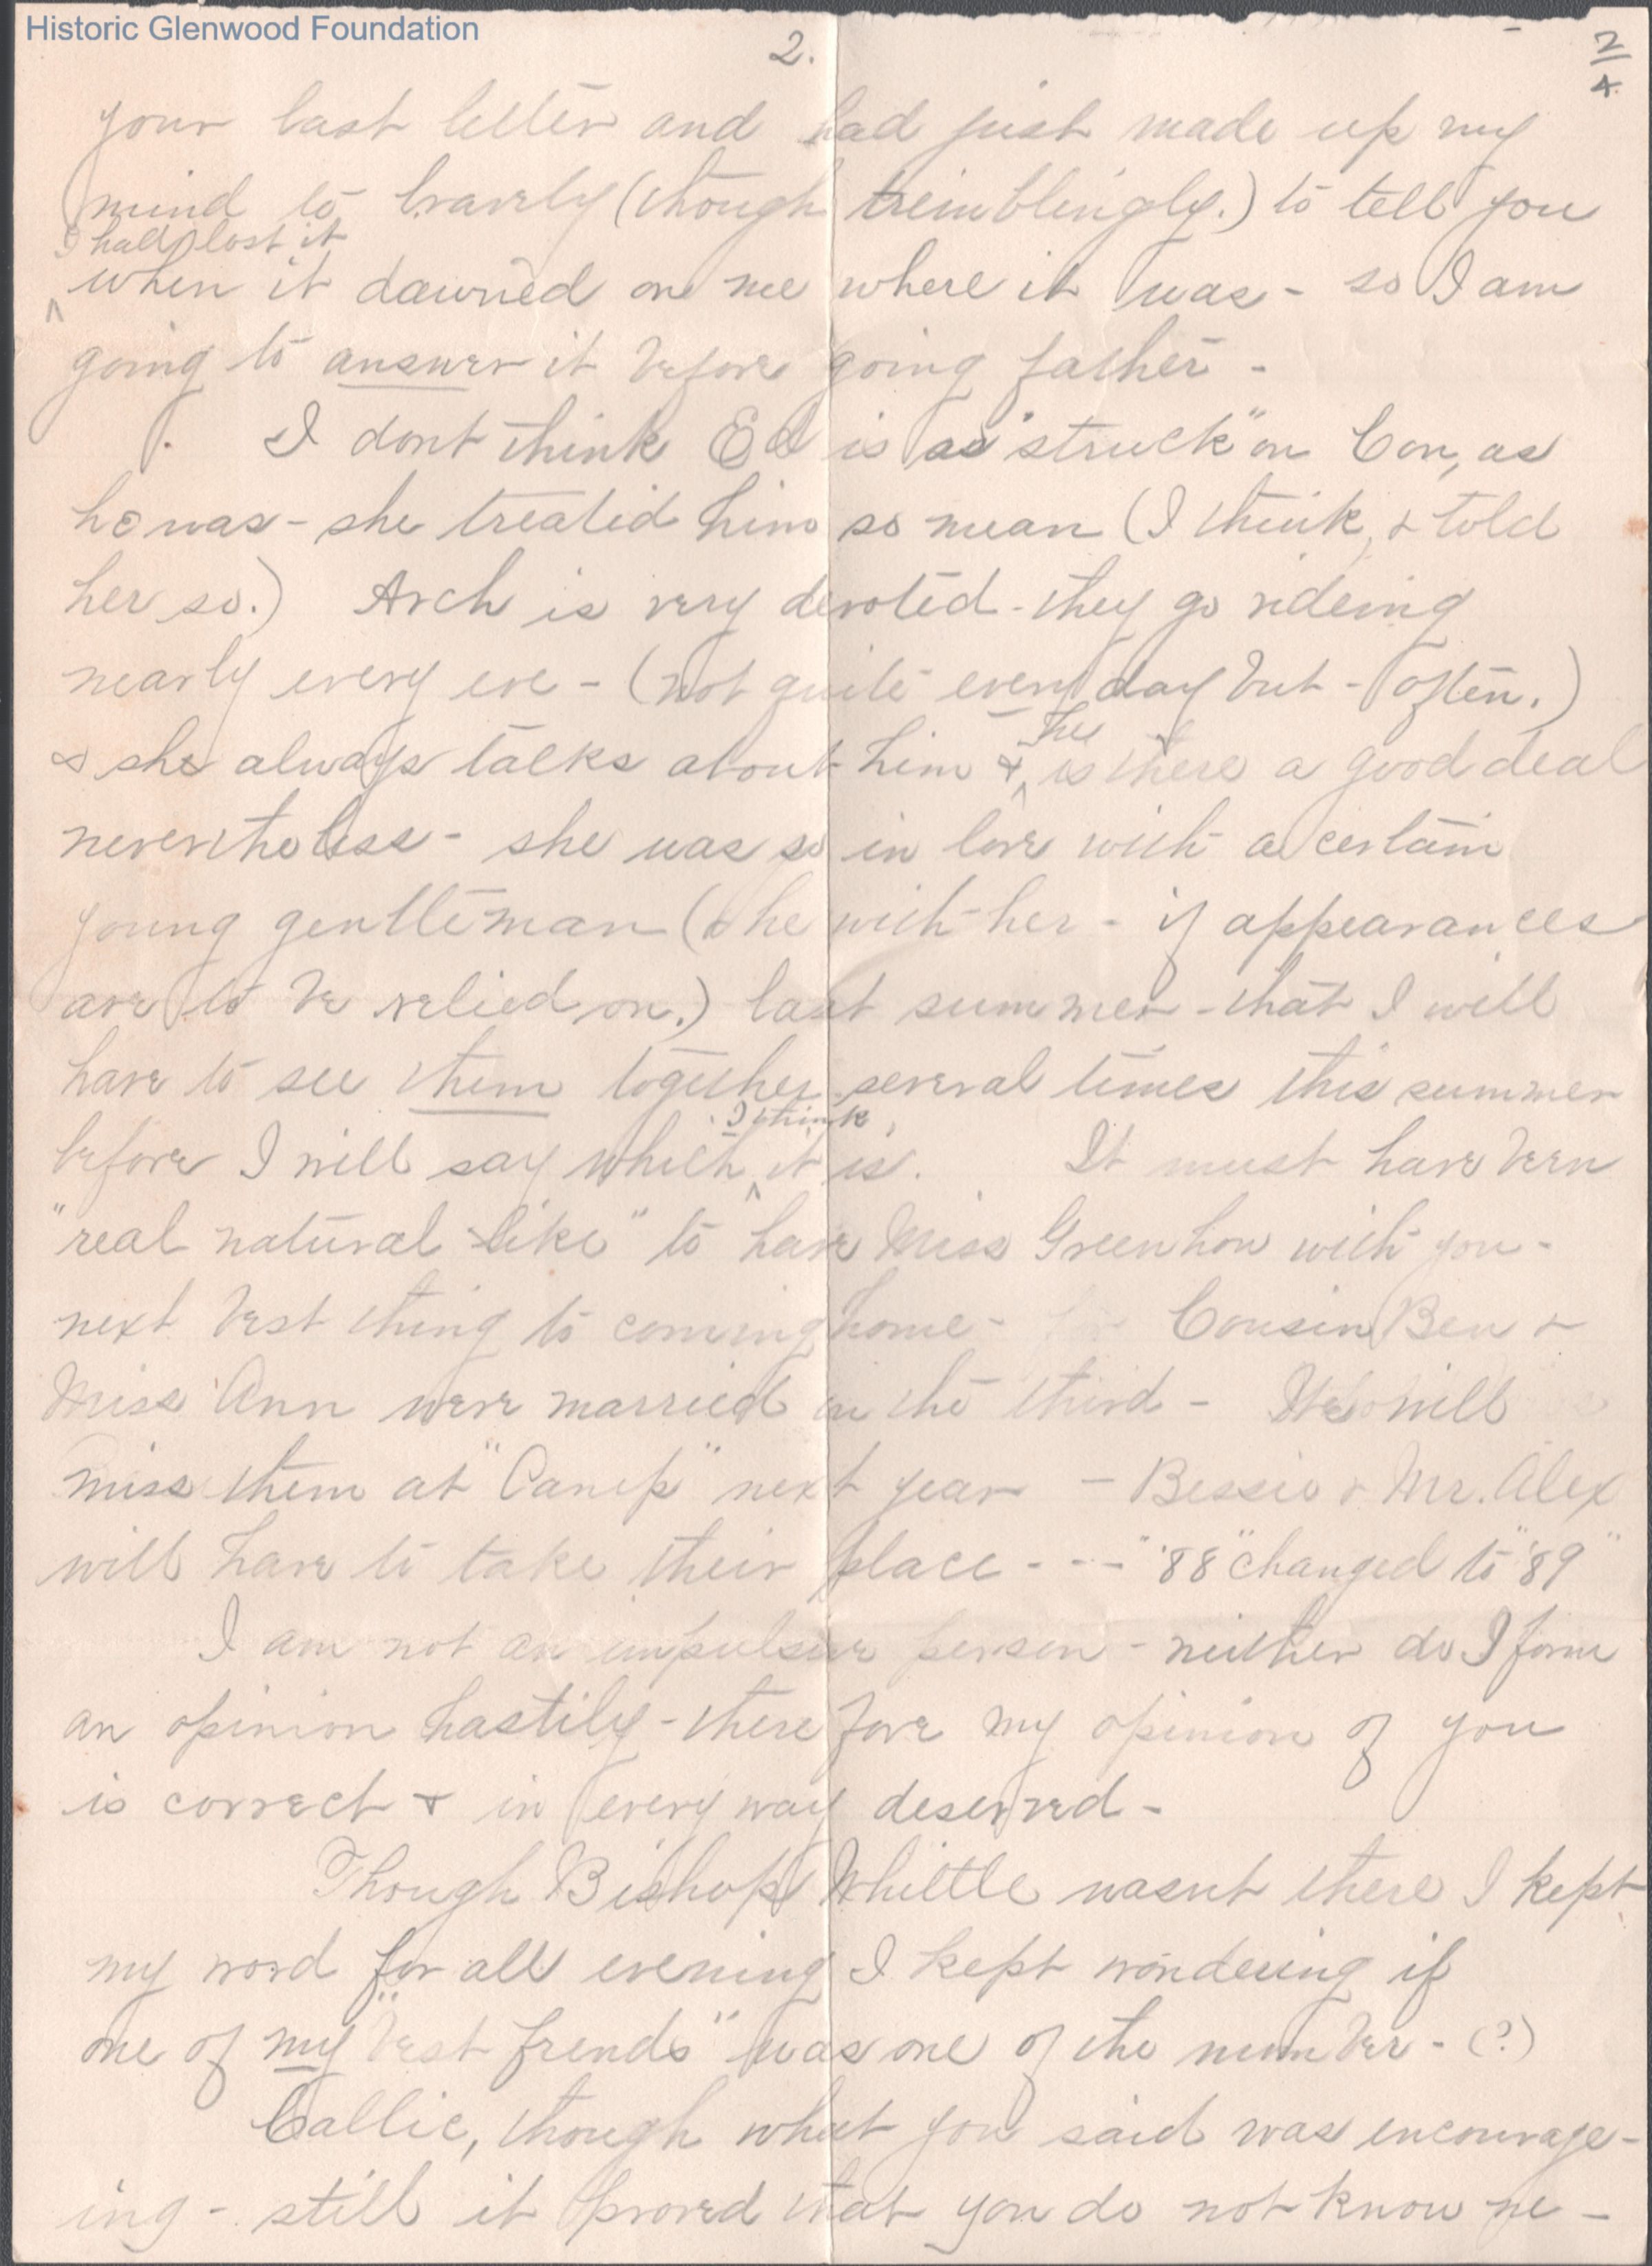 Historic Glenwood Foundation
2.
2/4.
your last letter and had just made up my
mind to bravely (though tremblingly.) to tell you
I had lost it
^ when it dawned on me where it was - so I am
going to answer it before going father -
I dont think Ed is as "struck" on Con, as
he was - she treated him so mean (I think, & told
her so.) Arch is very devoted - they go rideing
nearly every eve - (not quite every day but - often.)
& she always talks about him & ^ is there a good deal
nevertheless - she was so in love with a certain
young gentleman (& he with her - if appearances
are to be relied on.) last summer - that I will
have to see them together several times this summer
I think,
before I will say which ^ it is. It must have been
"real natural like" to have Miss Greenhow with you -
next best thing to coming home - Cousin Ben &
Miss Ann were married on the third - We will
miss them at "Camp" next year - Bessie & Mr. Alex
will have to take their place - - - "'88" changed to "'89"
I am not an impulsive person - neither do I form
an opinion hastily - there fore my opinion of you
is correct & in every way deserved -
Though Bishop Whittle wasnt there I kept
my word for all evening I kept wondering if
one of my "best frends" was one of the number - (?)
Callie, though what you said was encourage-
ing - still it proved that you do not know me -